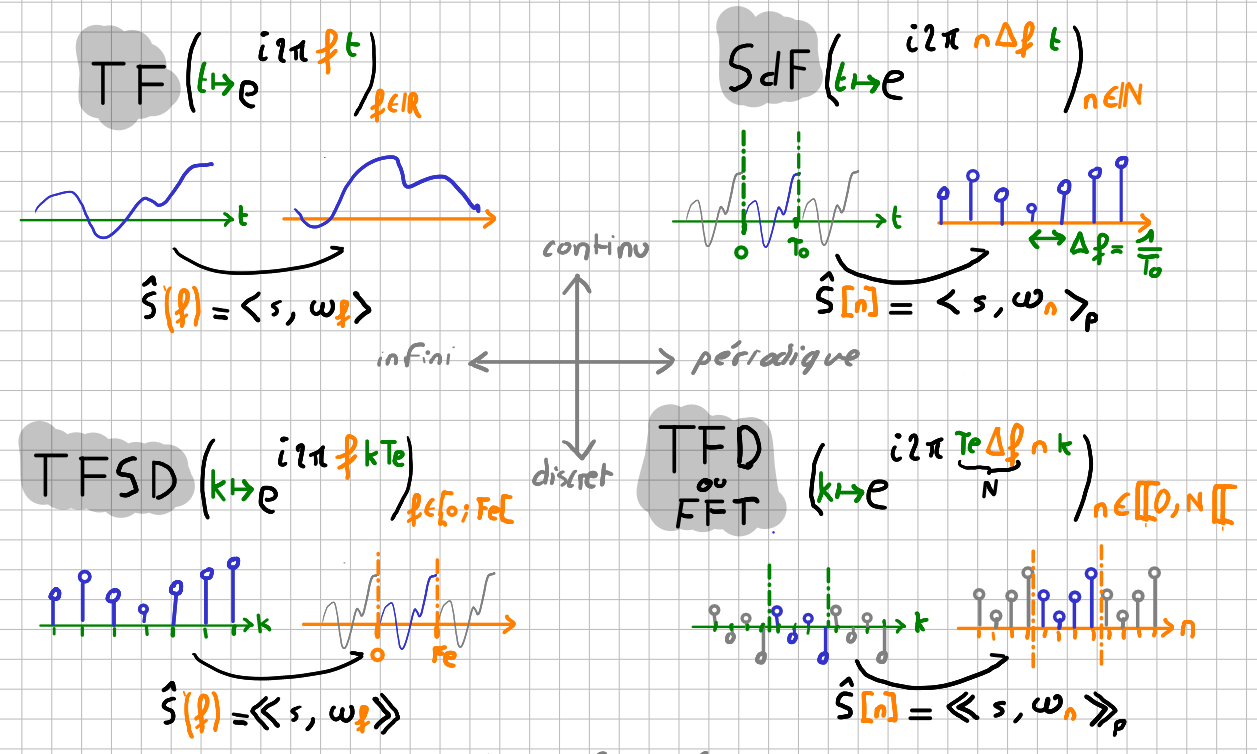 TF (t↦e^{i2π f t})_{f∈ℝ}
t
ŝ(f) = <s, ω_f>
SdF (t↦e^{i2π nΔf t})_{n∈ℕ}
t
0 T₀ Δf = 1/T₀
ŝ[n] = <s, ω_n>_p
continu
infini périodique
discret
TFSD (k↦e^{i2π f kTe})_{f∈[0;Fe[}
k
0 Fe
ŝ(f) = ≪s, ω_f≫
TFD
ou
FFT
(k↦e^{i2π TeΔf n k})_{n∈⟦0,N⟦}
N
k n
ŝ[n] = ≪s, ω_n≫_p